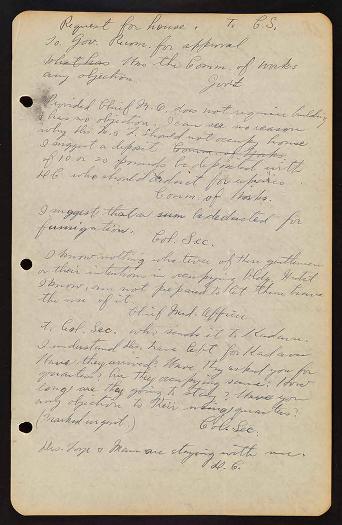 Request for house. To C.S.
To Gov. Room. for approval
What has Has the Comm. of Works
any objection. Gov't
Provided Chief M.O. does not require building
I has no objection. I can see no reason
why Drs H. & J. should not occupy house
I suggest a deposit Comm. of Works.
of 10 or 20 pounds be deposited with
H.C. who should deduct for repairs.
Comm. of Works.
I suggest that a sum be deducted for
fumigation.
Col. Sec.
I know nothing who two of these gentlemen
or their intentions in occupying Bldg. Until
I know, am not prepared to let them have
the use of it.
Chief Med. Officer
to Col. Sec. who sends it to Kadavu.
I understand Drs. have left for Kadavu
Have they arrived? Have they asked you for
quarters, Are they occupying same? How
long are they going to stay? Have you
any objection to their using quarters?
(marked urgent.) Col. Sec.
Drs. & Mann are staying with me.
D.C.